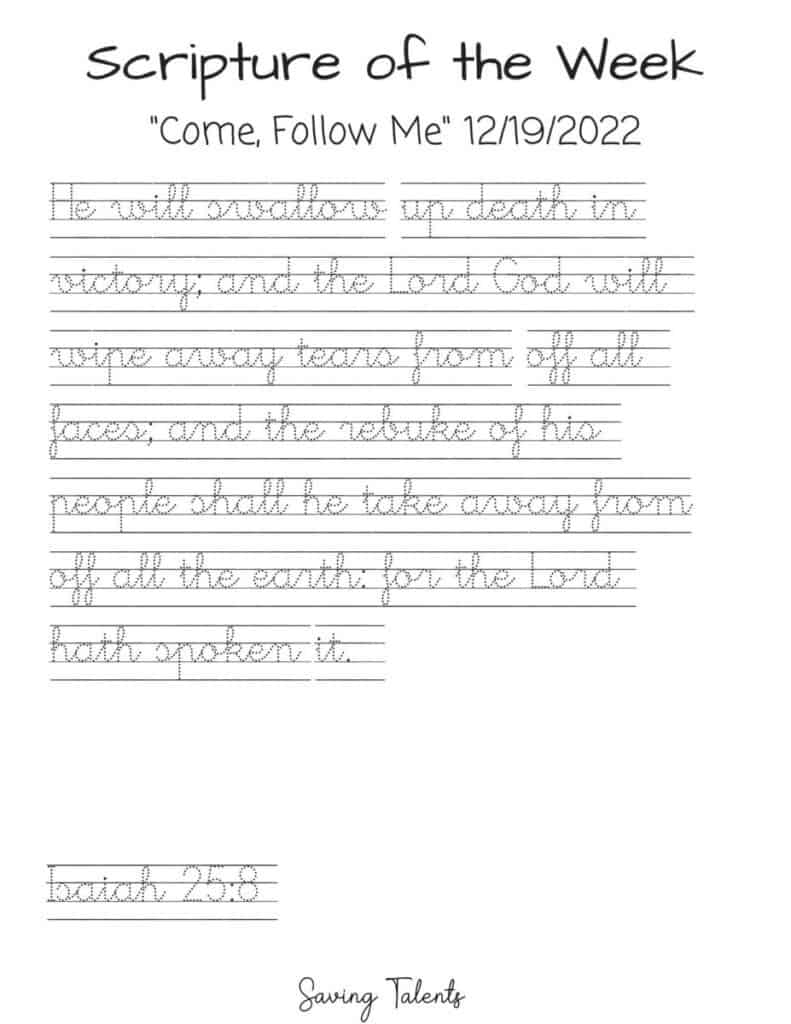 Scripture of the Week
"Come, Follow Me" 12/19/2022
He will swallow up death in
victory; and the Lord God will
wipe away tears from off all
faces; and the rebuke of his
people shall he take away from
off all the earth: for the Lord
hath spoken it.
Isaiah 25:8
Saving Talents